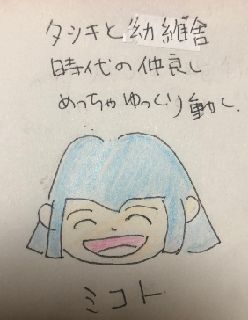 タシキと幼維舎
時代の仲良し
めっちゃゆっくり動く
ミコト